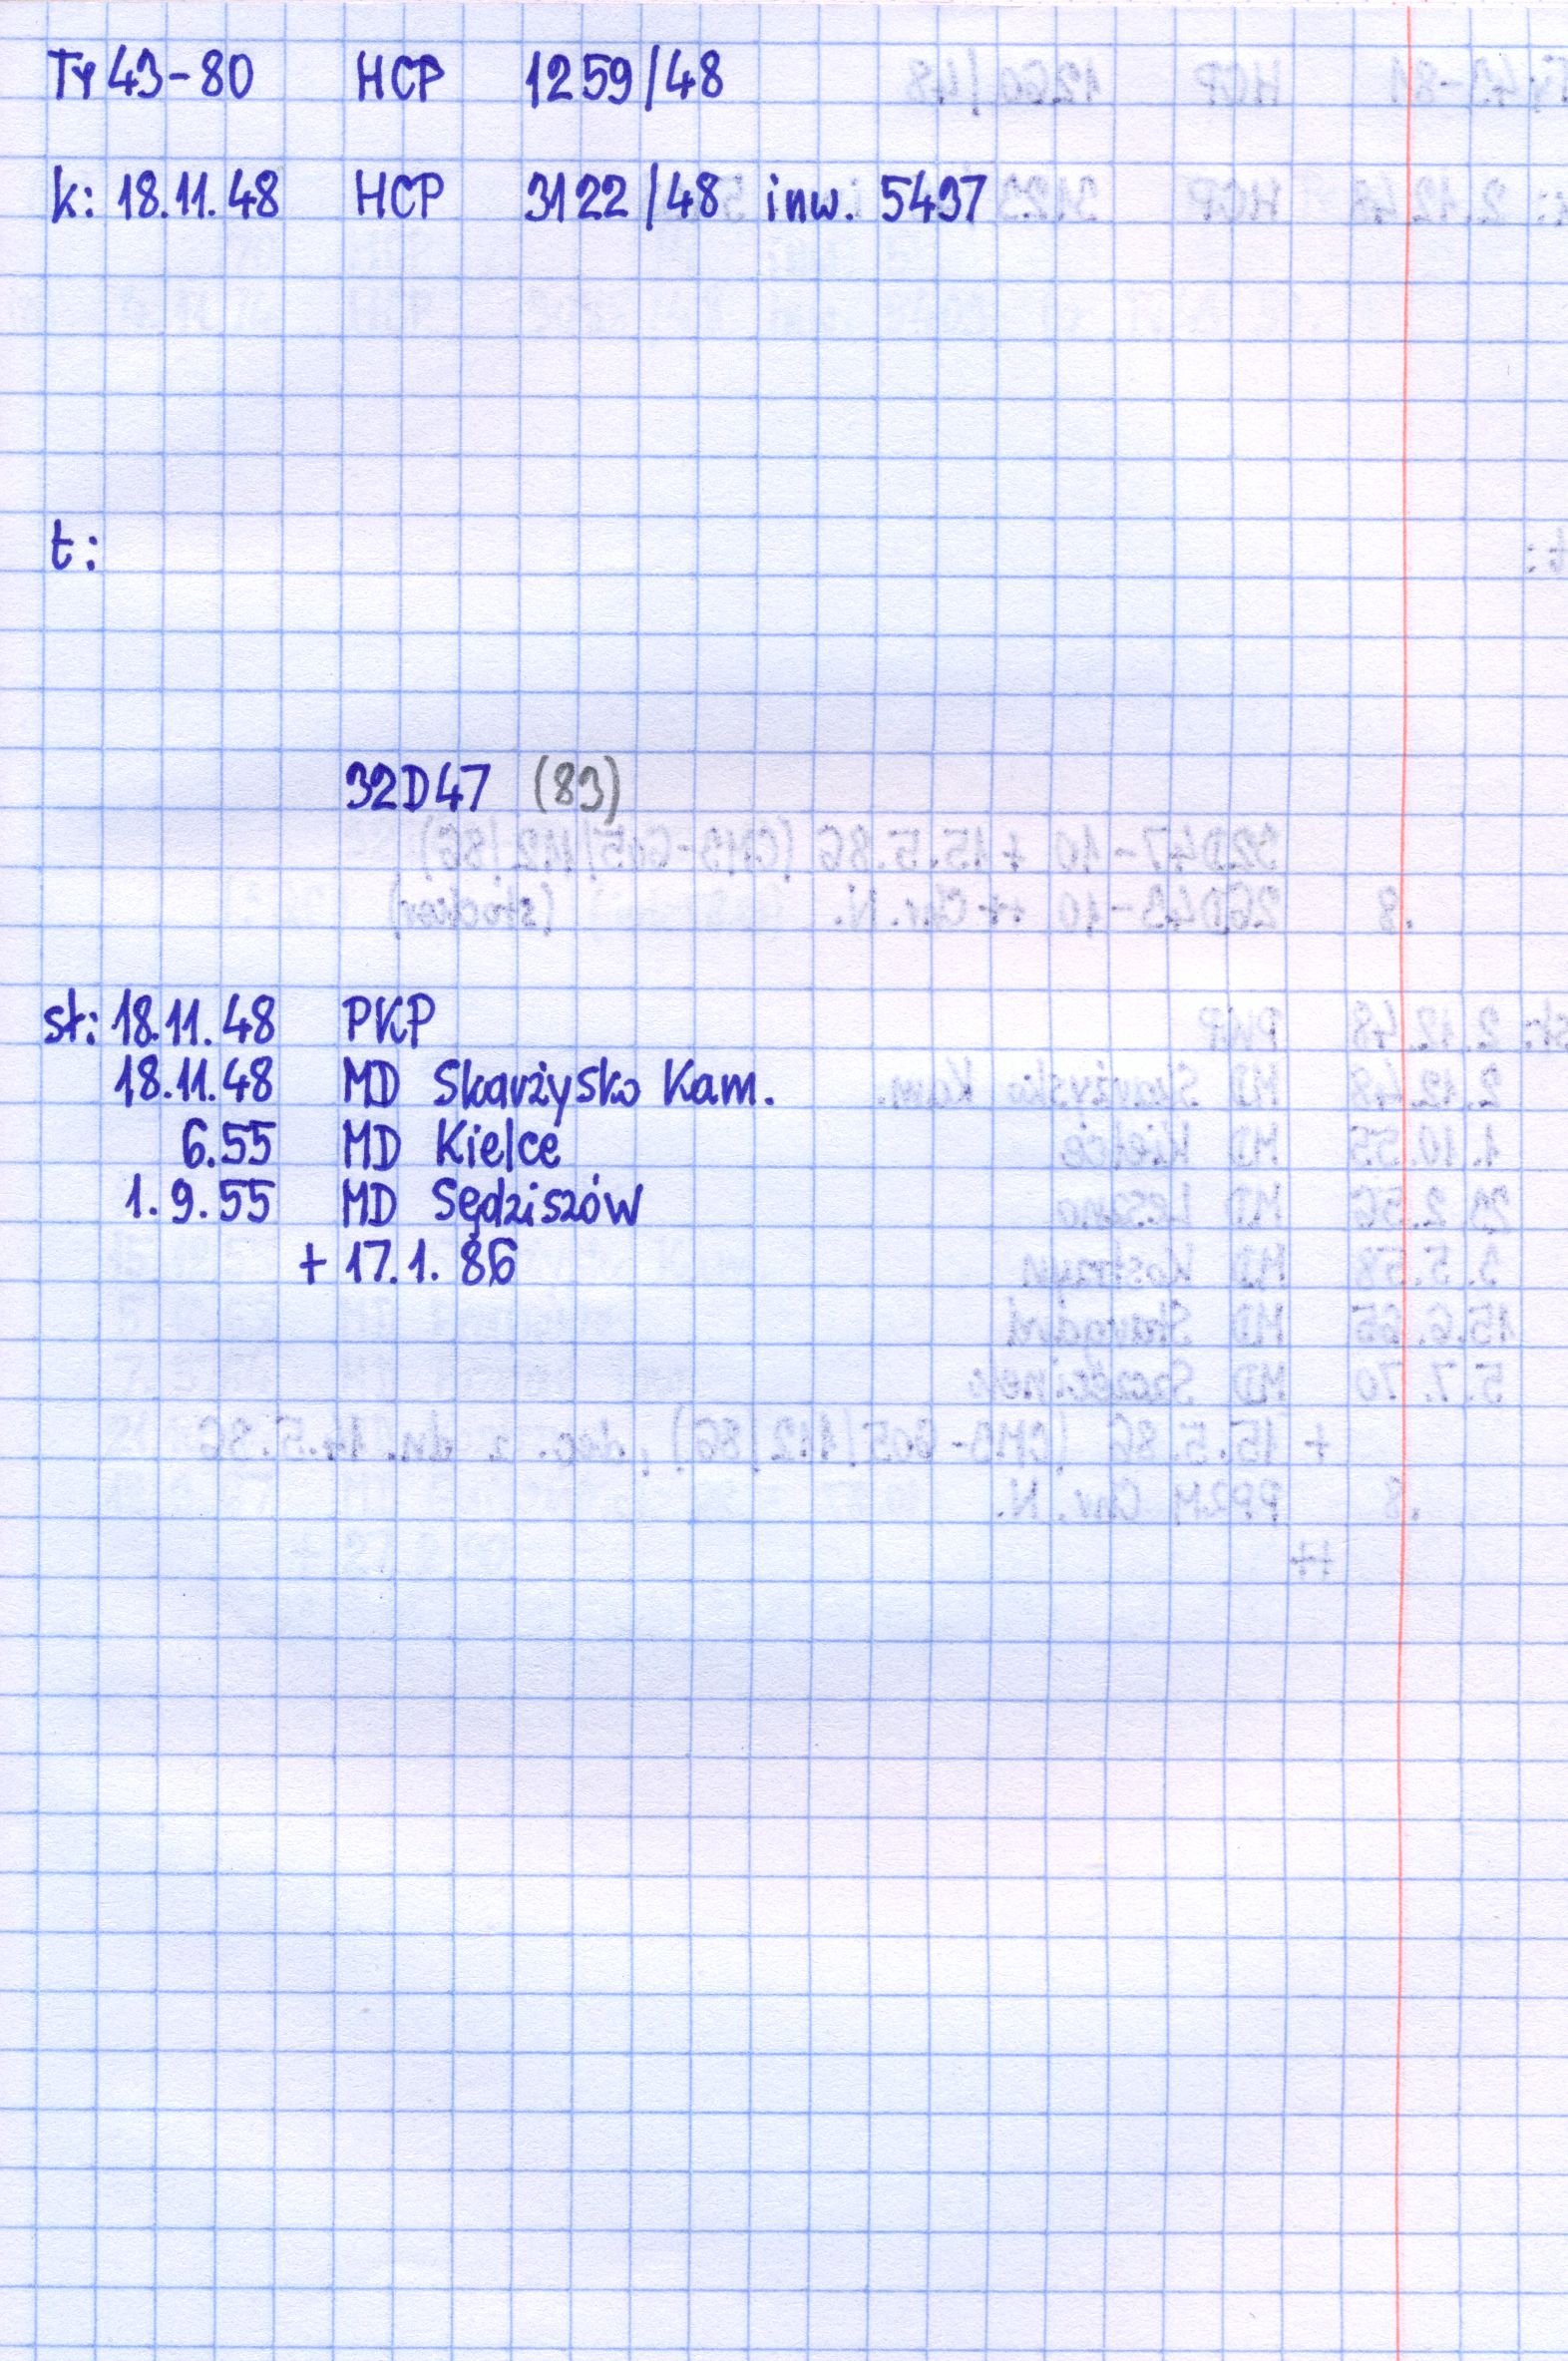 Ty43-80 HCP 1259/48
k: 18.11.48 HCP 3122/48 inw. 5437
t:
32D47 (83)
st: 18.11.48 PKP
18.11.48 MD Skarżysko Kam.
6.55 MD Kielce
1.9.55 MD Sędziszów
+ 17.1.86